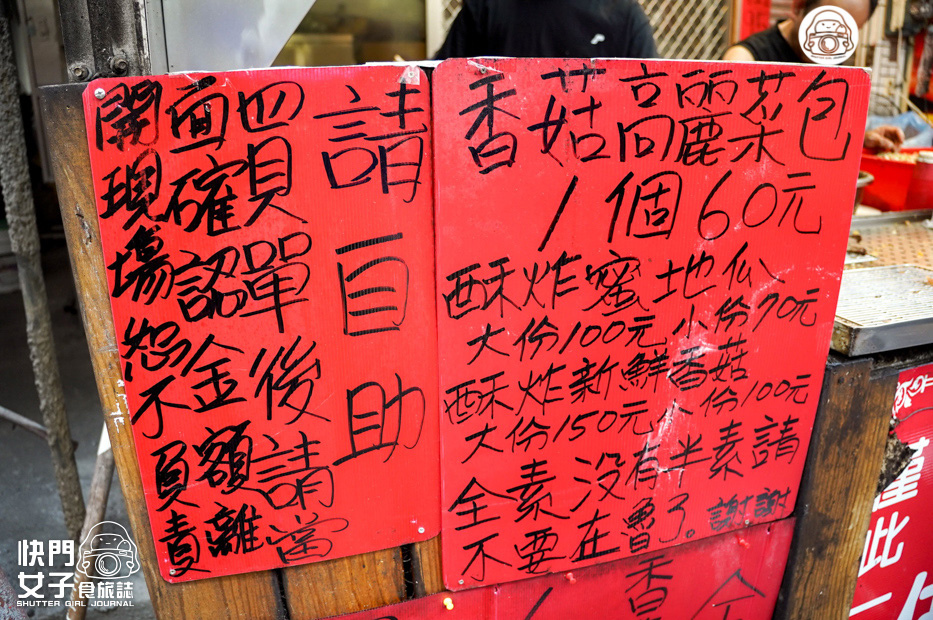 請自助
四貝單後請當
面確認金額離
開現場恕不負責
香菇高麗菜包
1個60元
酥炸蜜地瓜
大份100元 小份70元
酥炸新鮮香菇
大份150元 小份100元
全素 沒有半素請
不要在曾了。謝謝
香
1
全
僅此一
快門女子食旅誌
SHUTTER GIRL JOURNAL